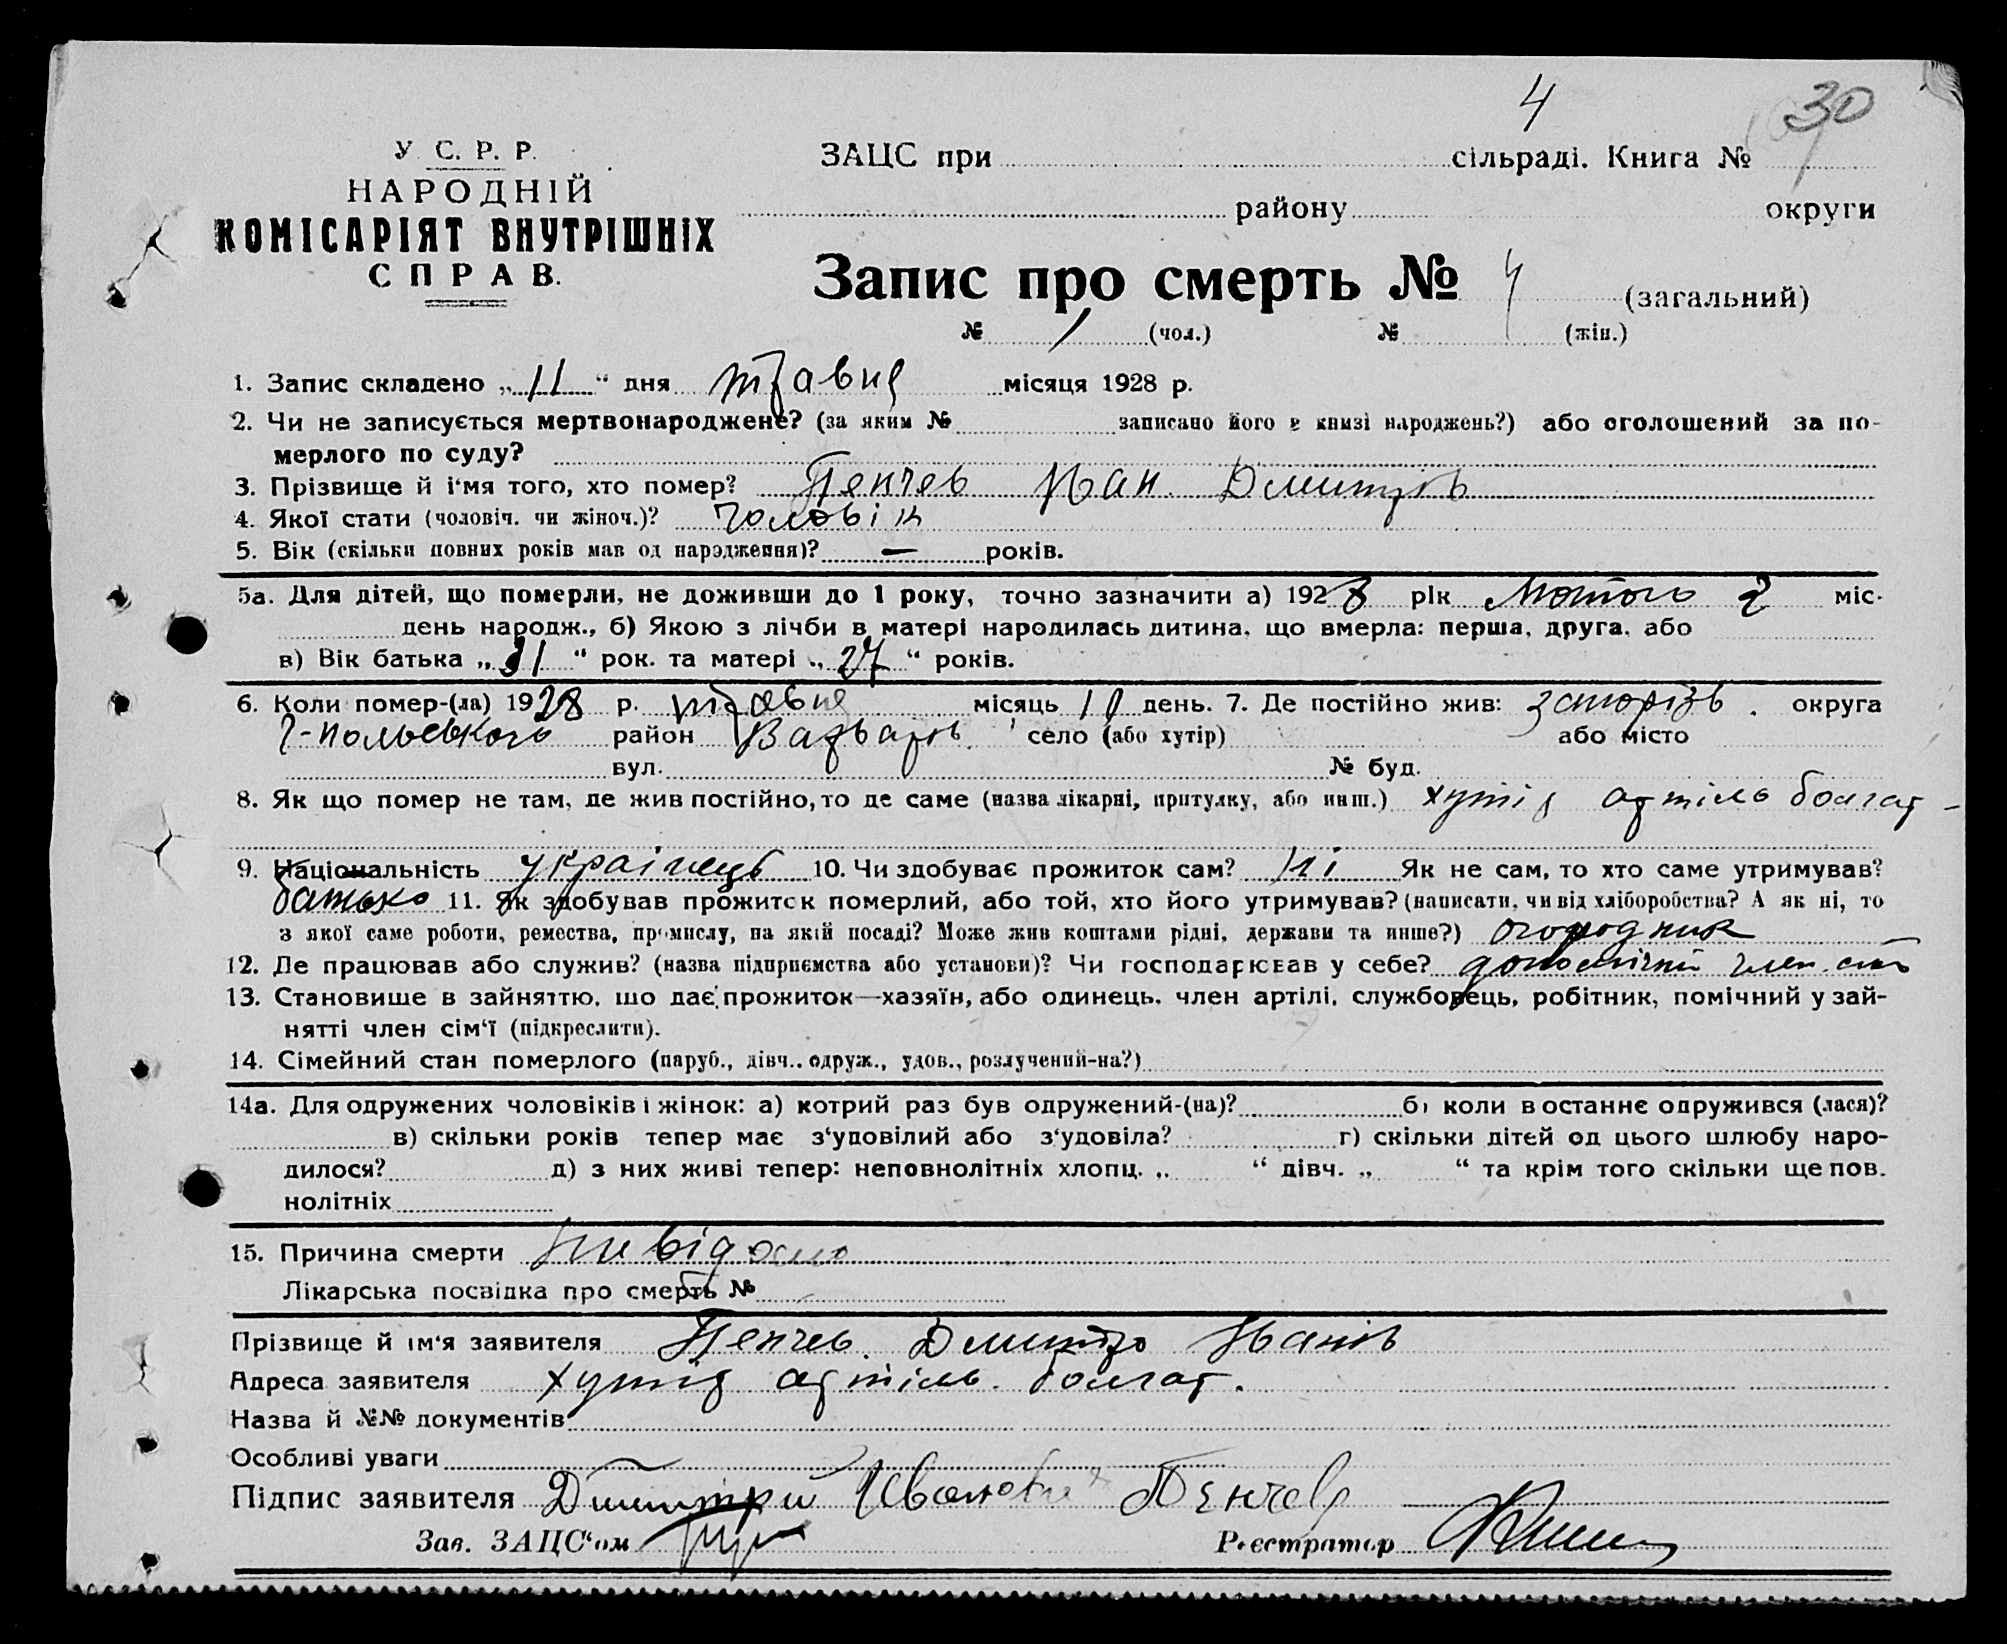 4
30
У. С. Р. Р.
НАРОДНІЙ
КОМІСАРІЯТ ВНУТРІШНІХ
СПРАВ.
ЗАЦС при сільраді. Книга №
району округи
Запис про смерть № 4 (загальний)
№ 1 (чол.) № (жін.)
1. Запис складено „11“ дня травня місяця 1928 р.
2. Чи не записується мертвонароджене? (за яким № записано його в книзі народжень?) або оголошений за по-
мерлого по суду?
3. Прізвище й і'мя того, хто помер? Пенчев Іван Дмитрів
4. Якої стати (чоловіч. чи жіноч.)? чоловік
5. Вік (скільки повних років мав од нарэдження)? — років.
5а. Для дітей, що померли, не доживши до 1 року, точно зазначити а) 1928 рік Лютого 2 міс.
день народж., б) Якою з лічби в матері народилась дитина, що вмерла: перша, друга, або
в) Вік батька „31“ рок. та матері „27“ років.
6. Коли помер-(ла) 1928 р. травня місяць 10 день. 7. Де постійно жив: Запоріз. округа
район село (або хутір) або місто
вул. № буд.
8. Як що помер не там, де жив постійно, то де саме (назва лікарні, притулку, або инш.) хутір артіль болгар-
9. Національність українець 10. Чи здобуває прожиток сам? Ні Як не сам, то хто саме утримував?
батько 11. Як здобував прожиток померлий, або той, хто його утримував? (написати, чи від хліборобства? А як ні, то
з якої саме роботи, ремества, промислу, на якій посаді? Може жив коштами рідні, держави та инше?) огородник
12. Де працював або служив? (назва підприємства або установи)? Чи господарював у себе? допомічний член. сім
13. Становище в зайняттю, що дає прожиток—хазяїн, або одинець, член артілі, службовець, робітник, помічний у зай-
нятті член сім'ї (підкреслити).
14. Сімейний стан померлого (паруб., дівч., одруж., удов., розлучений-на?)
14а. Для одружених чоловіків і жінок: а) котрий раз був одружений-(на)? б) коли востаннє одружився (лася)?
в) скільки років тепер має з'удовілий або з'удовіла? г) скільки дітей од цього шлюбу наро-
дилося? д) з них живі тепер: неповнолітніх хлопц. „ “ дівч. „ “ та крім того скільки ще пов.
нолітніх
15. Причина смерти Невідомо
Лікарська посвідка про смерть №
Прізвище й ім'я заявителя Пенчев. Дмитро Іванів
Адреса заявителя хутір артіль. болгар.
Назва й №№ документів
Особливі уваги
Підпис заявителя Дмитрий Иванович Пенчев
Зав. ЗАЦС'ом Реєстратор